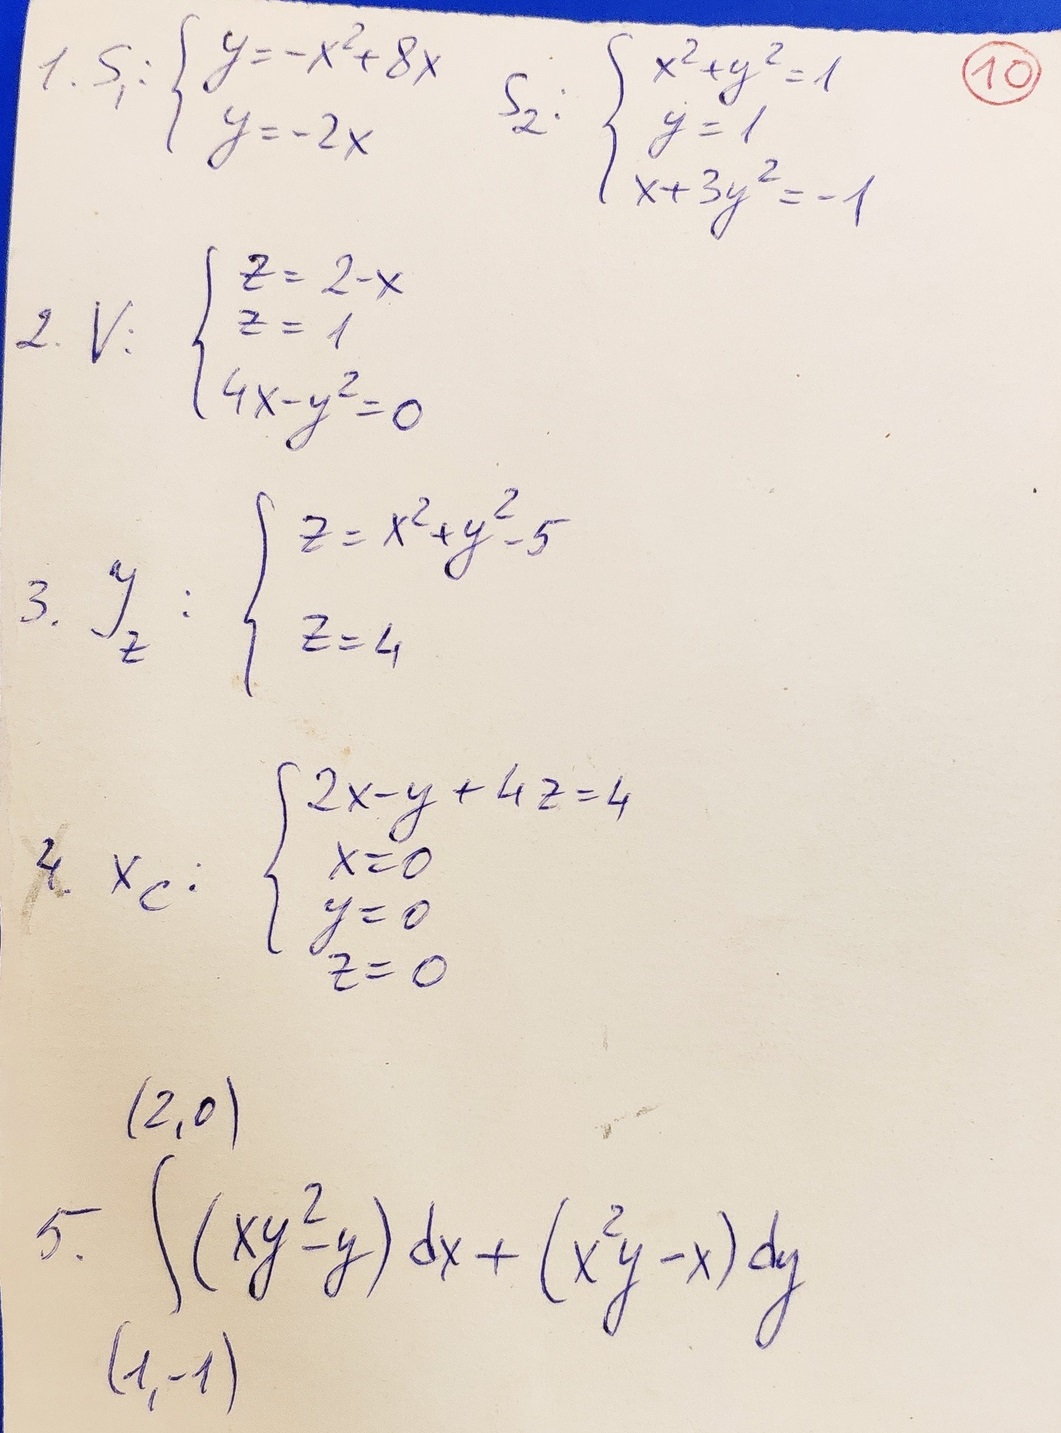 1. S₁: { y = -x² + 8x
y = -2x
S₂: { x² + y² = 1
y = 1
x + 3y² = -1
10
2. V: { z = 2 - x
z = 1
4x - y² = 0
3. y_z : { z = x² + y² - 5
z = 4
4. x_c : { 2x - y + 4z = 4
x = 0
y = 0
z = 0
(2,0)
5. ∫ (xy² - y) dx + (x²y - x) dy
(1,-1)